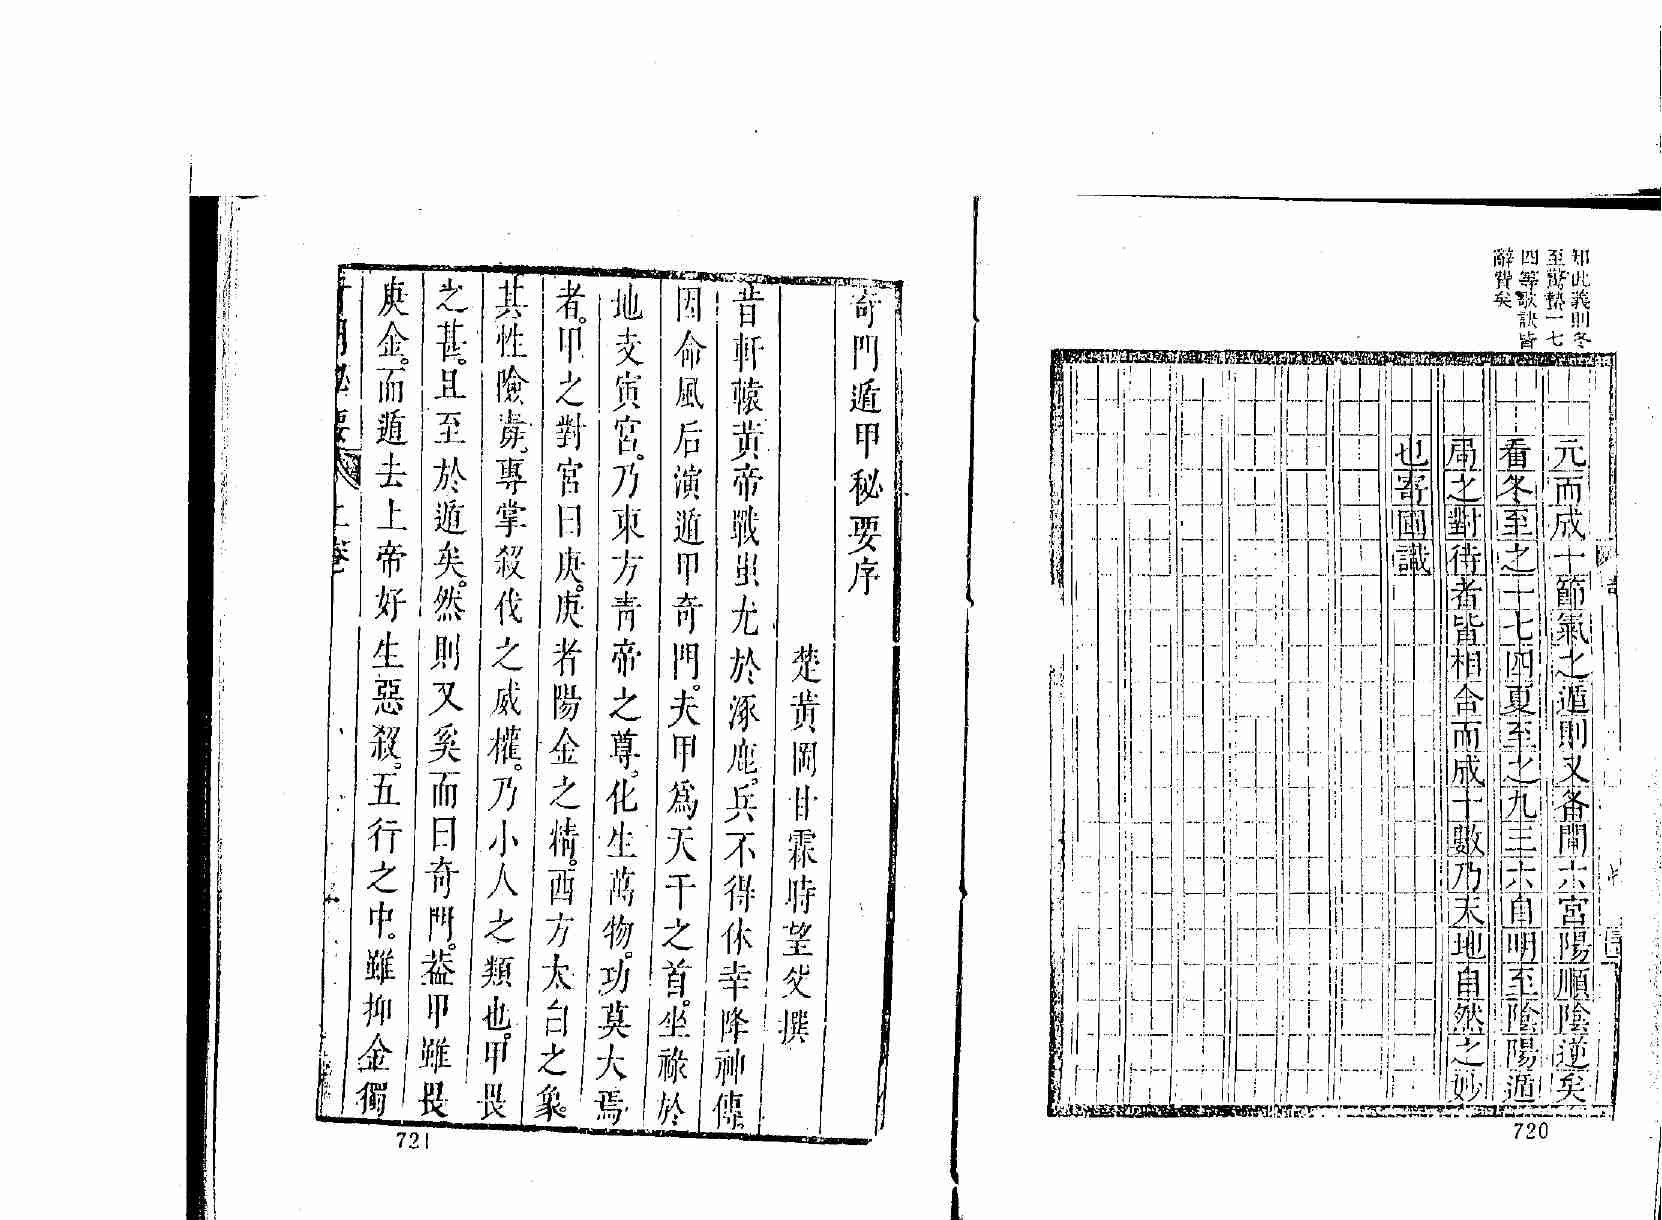 知此義則冬
至驚蟄一七
四等歌訣皆
辭費矣
元而成十節氣之遁則又各閒六宮陽順陰逆矣
看冬至之一七四夏至之九三六自明至陰陽遁
局之對待者皆相合而成十數乃天地自然之妙
也寄圃識
720
奇門遁甲秘要序
楚黃岡甘霖時望父撰
昔軒轅黃帝戰蚩尤於涿鹿。兵不得休幸降神傳。
因命風后演遁甲奇門。夫甲爲天干之首。坐祿於
地支寅宮。乃東方靑帝之尊。化生萬物。功莫大焉
者。甲之對宮曰庚。庚者陽金之精。西方太白之象。
其性險毒。專掌殺伐之威權。乃小人之類也。甲畏
之甚。且至於遁矣。然則又奚而曰奇門。葢甲雖畏
庚金。而遁去上帝好生惡殺。五行之中。雖抑金獨
奇門秘要 上卷
721